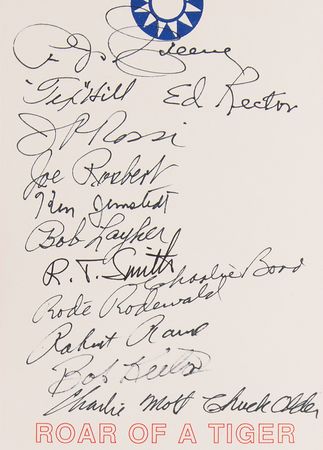 P. J. Greene
"Tex" Hill Ed Rector
J R Rossi
Joe Rosbert
Ken Jernstedt
Bob Layher
R. T. Smith
Charlie Bond
Rode Rodewald
Robert Raine
Bob Keeton
Charlie Mott Chuck Older
ROAR OF A TIGER